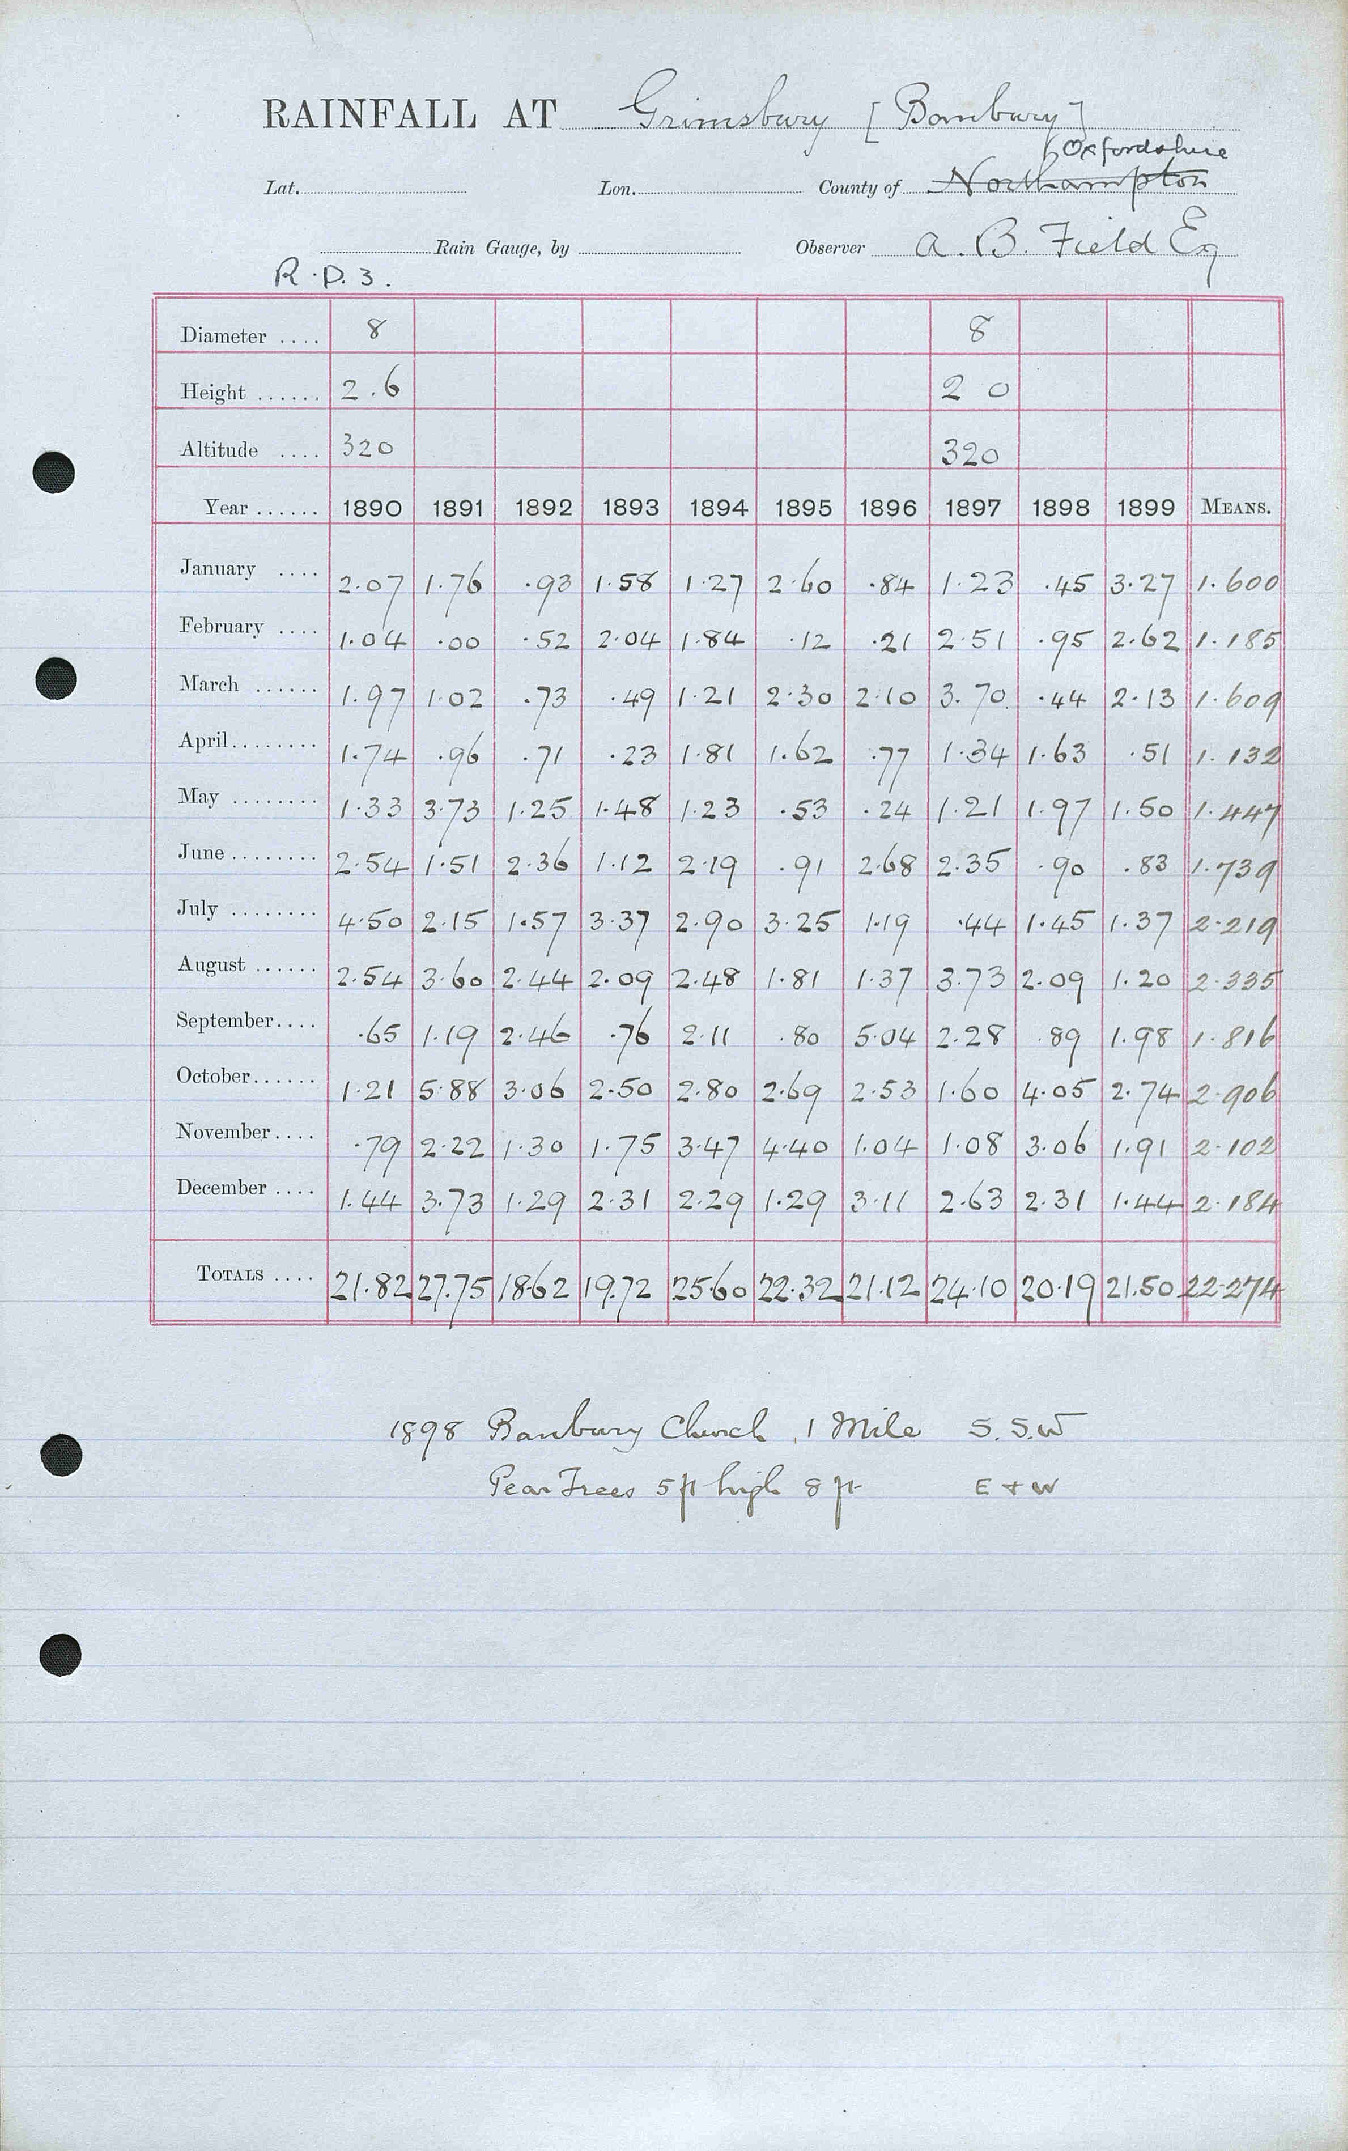 RAINFALL AT Grimsbury [Banbury]
Oxfordshire
Lat. Lon. County of Northampton
Rain Gauge, by Observer A. B. Field Esq
R.D.3.
Diameter .... 8 8
Height ...... 2.6 2 0
Altitude .... 320 320
Year ...... 1890 1891 1892 1893 1894 1895 1896 1897 1898 1899 MEANS.
January .... 2.07 1.76 .93 1.58 1.27 2.60 .84 1.23 .45 3.27 1.600
February .... 1.04 .00 .52 2.04 1.84 .12 .21 2.51 .95 2.62 1.185
March ...... 1.97 1.02 .73 .49 1.21 2.30 2.10 3.70 .44 2.13 1.609
April........ 1.74 .96 .71 .23 1.81 1.62 .77 1.34 1.63 .51 1.132
May ........ 1.33 3.73 1.25 1.48 1.23 .53 .24 1.21 1.97 1.50 1.447
June........ 2.54 1.51 2.36 1.12 2.19 .91 2.68 2.35 .90 .83 1.739
July ........ 4.50 2.15 1.57 3.37 2.90 3.25 1.19 .44 1.45 1.37 2.219
August ...... 2.54 3.60 2.44 2.09 2.48 1.81 1.37 3.73 2.09 1.20 2.335
September.... .65 1.19 2.46 .76 2.11 .80 5.04 2.28 .89 1.98 1.816
October...... 1.21 5.88 3.06 2.50 2.80 2.69 2.53 1.60 4.05 2.74 2.906
November.... .79 2.22 1.30 1.75 3.47 4.40 1.04 1.08 3.06 1.91 2.102
December .... 1.44 3.73 1.29 2.31 2.29 1.29 3.11 2.63 2.31 1.44 2.184
TOTALS .... 21.82 27.75 18.62 19.72 25.60 22.32 21.12 24.10 20.19 21.50 22.274
1898 Banbury Church, 1 Mile S.S.W
Pear Trees 5 ft high 8 ft E + W